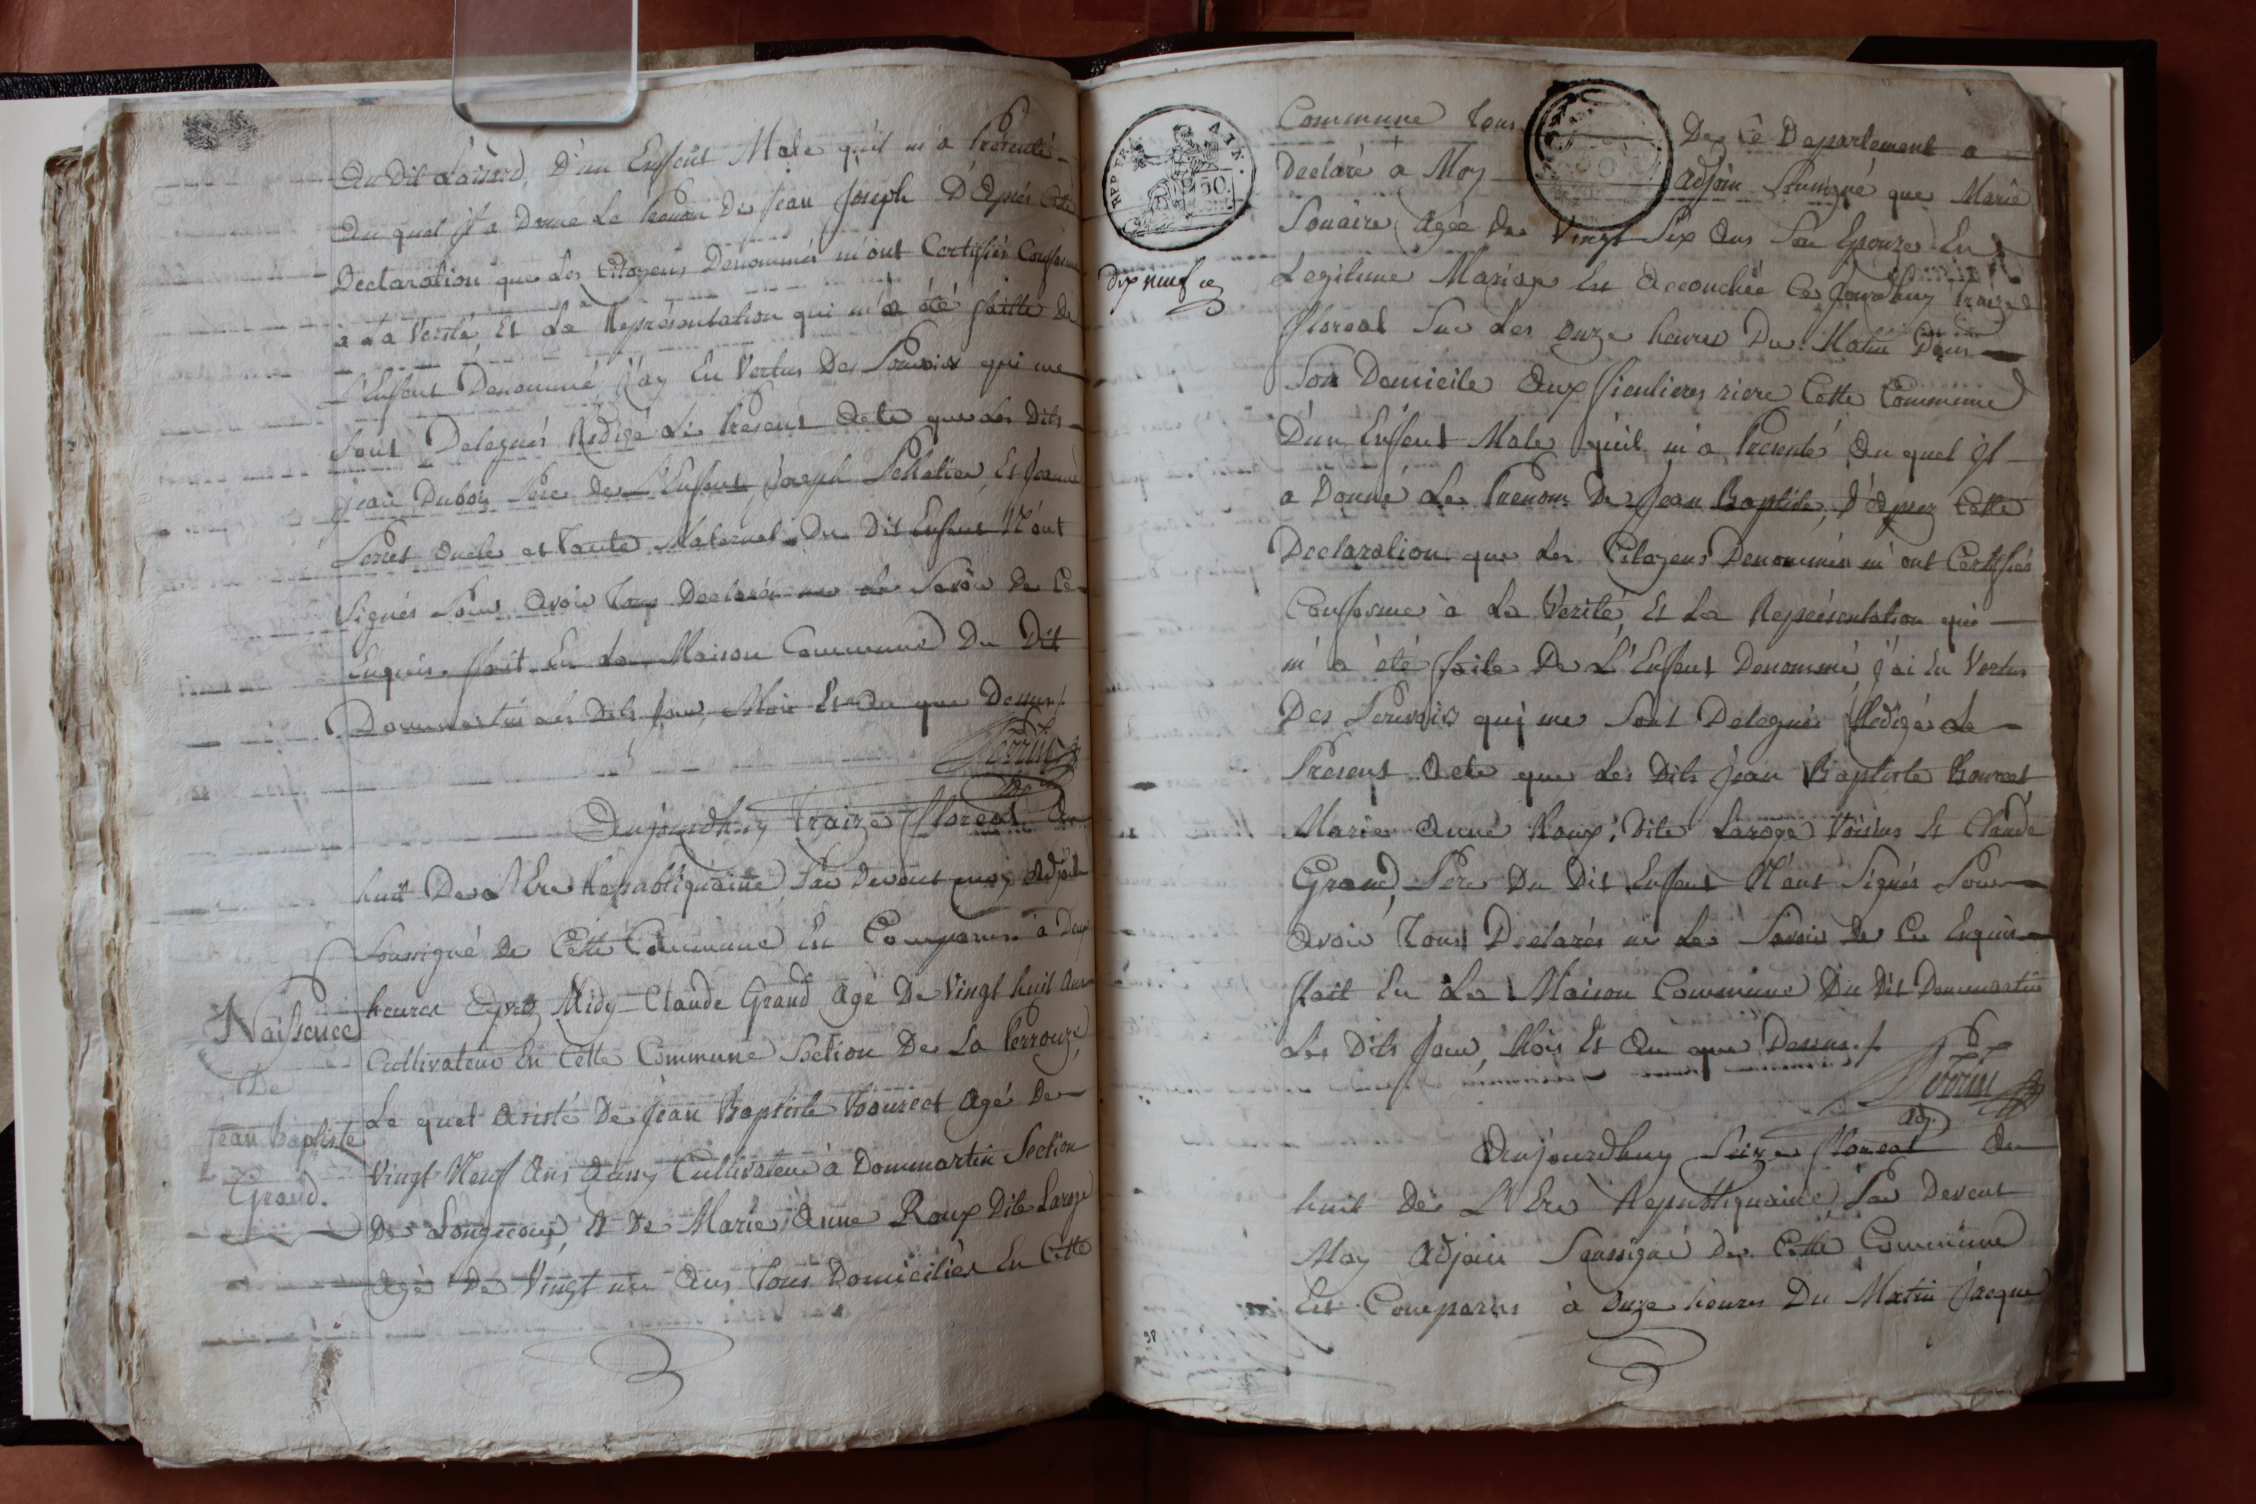 Au Dit D'un Enfent Male qu'il m'a Presenté
Au quel Jl a Donné Le Prenom De Jean Joseph D'Aprés Cette
Declaration que Les Citoyens Denommés m'ont Certifiés Conforme
a La Verité, Et La Représentation qui m'a été faitte De
L'Enfent Denommé J'ay En Vertus Des Pouvoir qui me
sont Delegués Redigé Le Présent Acte que Les Dits
Jean Dubois Pere De L'Enfent, Joseph Pelletier Et Jeanne
oncle et tante Maternel Du Dit Enfent N'ont
Signés Pour Avoir Tous Declarés ne Le Savoir De Ce
Enquis. fait En La Maison Commune Du Dit
Dommartin Les Dits Jour, Mois Et An que Dessus./.
Perrin
adj
Aujourdhuy Traize floreal An
huit De L'Ere Republiquaine, Par Devent moy Adjoin
Soussigné De Cette Commune Est Comparus à Deux
heures Aprés Midy Claude Grand Agé De Vingt huit Ans
Cultivateur En Cette Commune Section De La Perrouze
Le quel Asisté De Jean Baptiste Bourcet Agé De
Vingt Neuf Ans Aussy Cultivateur à Dommartin Section
De Longecour, et De Marie Anne Roux Dite Laroze
Agé De Vingt un Ans Tous Domiciliés En Cette
Naissence
De
Jean Baptiste
Grand.
REP. FRA
50.
Dix neuf
Commune Tous De Ce Departement a
Declaré à Moy Adjoin Soussigné que Marie
Souaire Agée De Vingt Six Ans Son Epouze En
Legitime Mariage Est Accouchée Ce Jourdhuy traize
floreal Sur Les onze heures Du Matin Dans
Son Domicile Aux fieulieres riere Cette Commune
D'un Enfent Male qu'il m'a Presenté Au quel Jl
a Donné Le Prenom De Jean Baptiste, D'aprez Cette
Declaration que Les Citoyens Denommés m'ont Certifiés
Conforme à La Verité, Et La Représentation qui
m'a été faite De L'Enfent Denommé j'ai En Vertus
Des Pouvoir qui me Sont Delegués Redigé Le
Present Acte que Les Dits Jean Baptiste Bourcet
Marie Anne Roux, Dite Laroze Voisins Et Claude
Grand, Pere Du Dit Enfent N'ont Signés Pour
Avoir Tous Declarés ne Le Savoir De Ce Enquis
fait En La Maison Commune Du Dit Dommartin
Les Dits Jour, Mois Et An que Dessus./.
Perrin
adj
Aujourdhuy Seize floreal An
huit De L'Ere Republiquaine, Par Devent
Moy Adjoin Soussigné De Cette Commune
Est Comparus à onze heures Du Matin Jacque